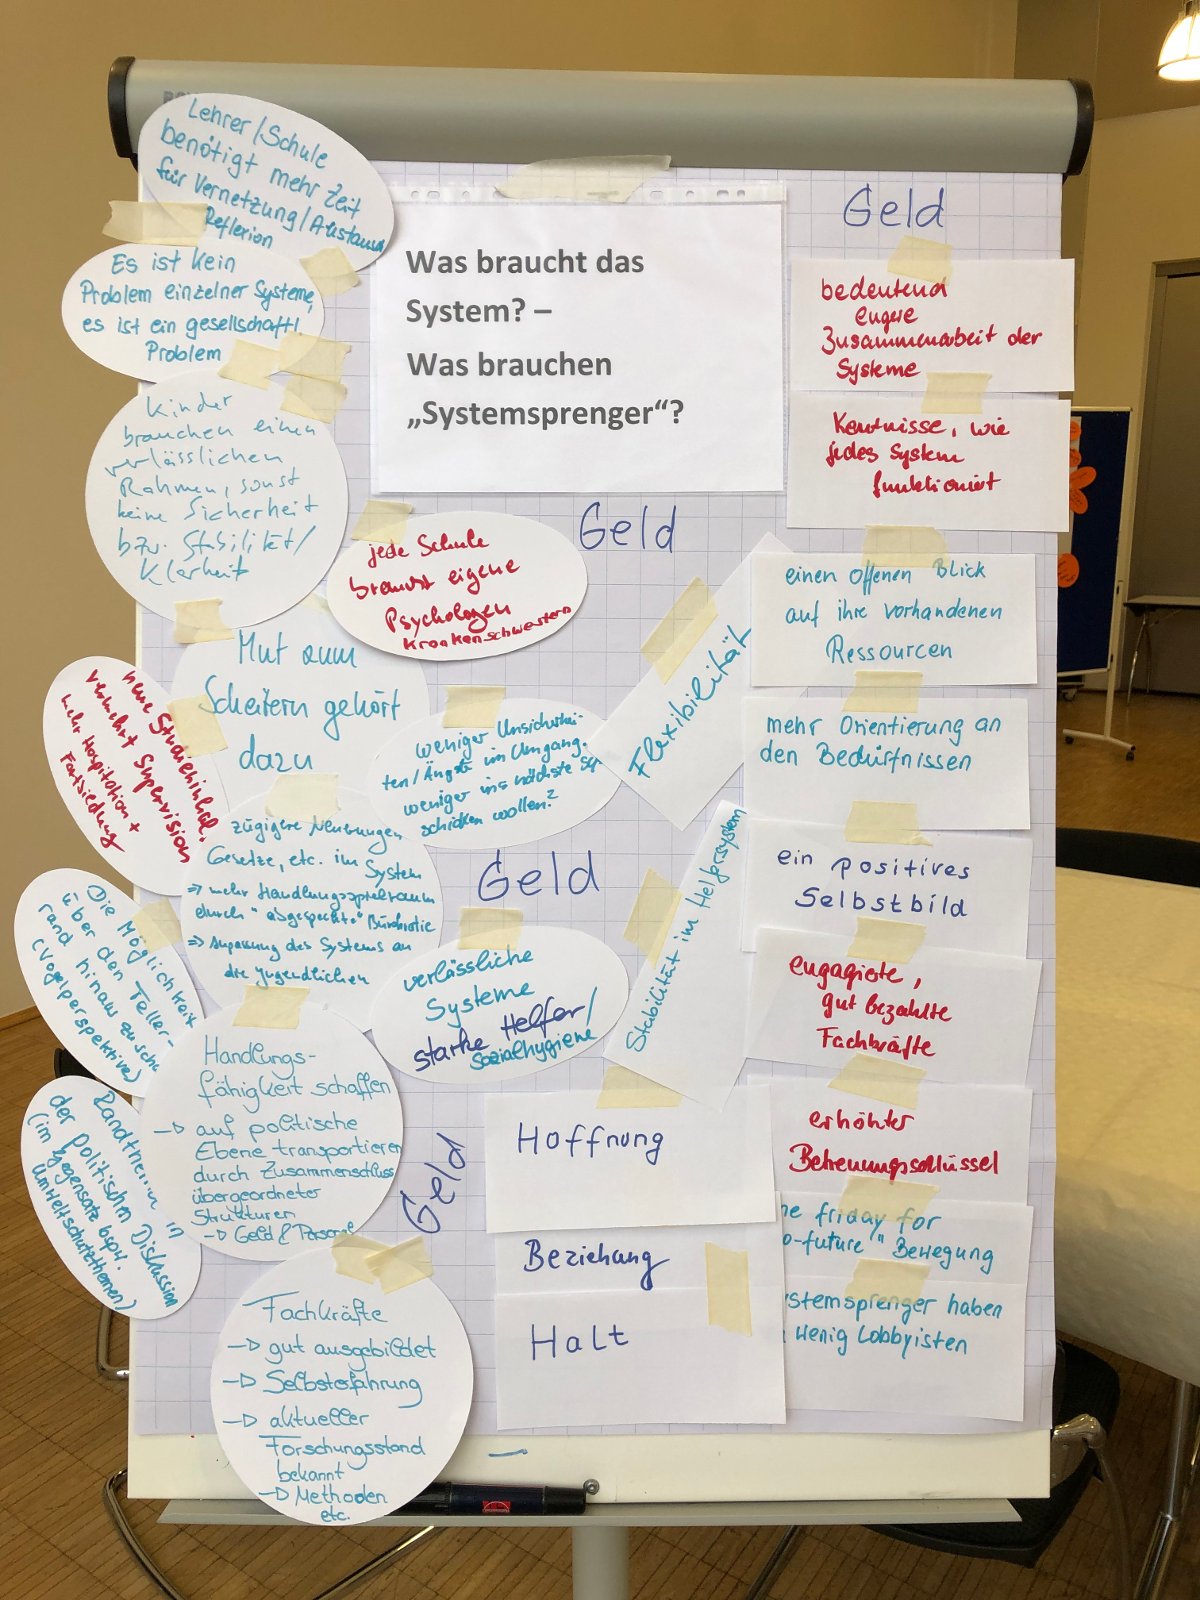 Lehrer/Schule
benötigt mehr Zeit
für Vernetzung/Austausch
Reflexion
Es ist kein
Problem einzelner Systeme,
es ist ein gesellschaftl
Problem
Kinder
brauchen einen
verlässlichen
Rahmen, sonst
keine Sicherheit
bzw. Stabilität/
Klarheit
Was braucht das
System? –
Was brauchen
„Systemsprenger“?
Geld
bedeutend
engere
Zusammenarbeit der
Systeme
Kenntnisse, wie
jedes System
funktioniert
Geld
jede Schule
braucht eigene
Psychologen
Krankenschwestern
Mut zum
Scheitern gehört
dazu
neue Studieninhalt.
vermehrt Supervision
mehr Hospitation +
weniger Unsicherhei-
ten/Ängste im Umgang.
weniger ins nächste Sys
schicken wollen?
Flexibilität
einen offenen Blick
auf ihre vorhandenen
Ressourcen
mehr Orientierung an
den Bedürfnissen
zügigere Neuerungen
Gesetze, etc. im System
⇒ mehr Handlungsspielraum
durch "abgespeckte" Bürokratie
⇒ Anpassung des Systems an
die Jugendlichen
Geld
Stabilität im Helfersystem
ein positives
Selbstbild
Die Möglichkeit
über den Teller-
rand hinaus zu sehen
(Vogelperspektive)
verlässliche
Systeme
starke Helfer/
Sozialhygiene
engagierte,
gut bezahlte
Fachkräfte
Handlungs-
fähigkeit schaffen
→ auf politische
Ebene transportieren
durch Zusammenschluss
übergeordneter
Strukturen
→ Geld & Personal
Randthema in
der politischen Diskussion
(im Gegensatz bspw.
Umweltschutzthemen)
Geld
Hoffnung
Beziehung
Halt
erhöhter
Betreuungsschlüssel
ne friday for
o-future/" Bewegung
ystemsprenger haben
wenig Lobbyisten
Fachkräfte
→ gut ausgebildet
→ Selbsterfahrung
→ aktueller
Forschungsstand
bekannt
→ Methoden
etc.